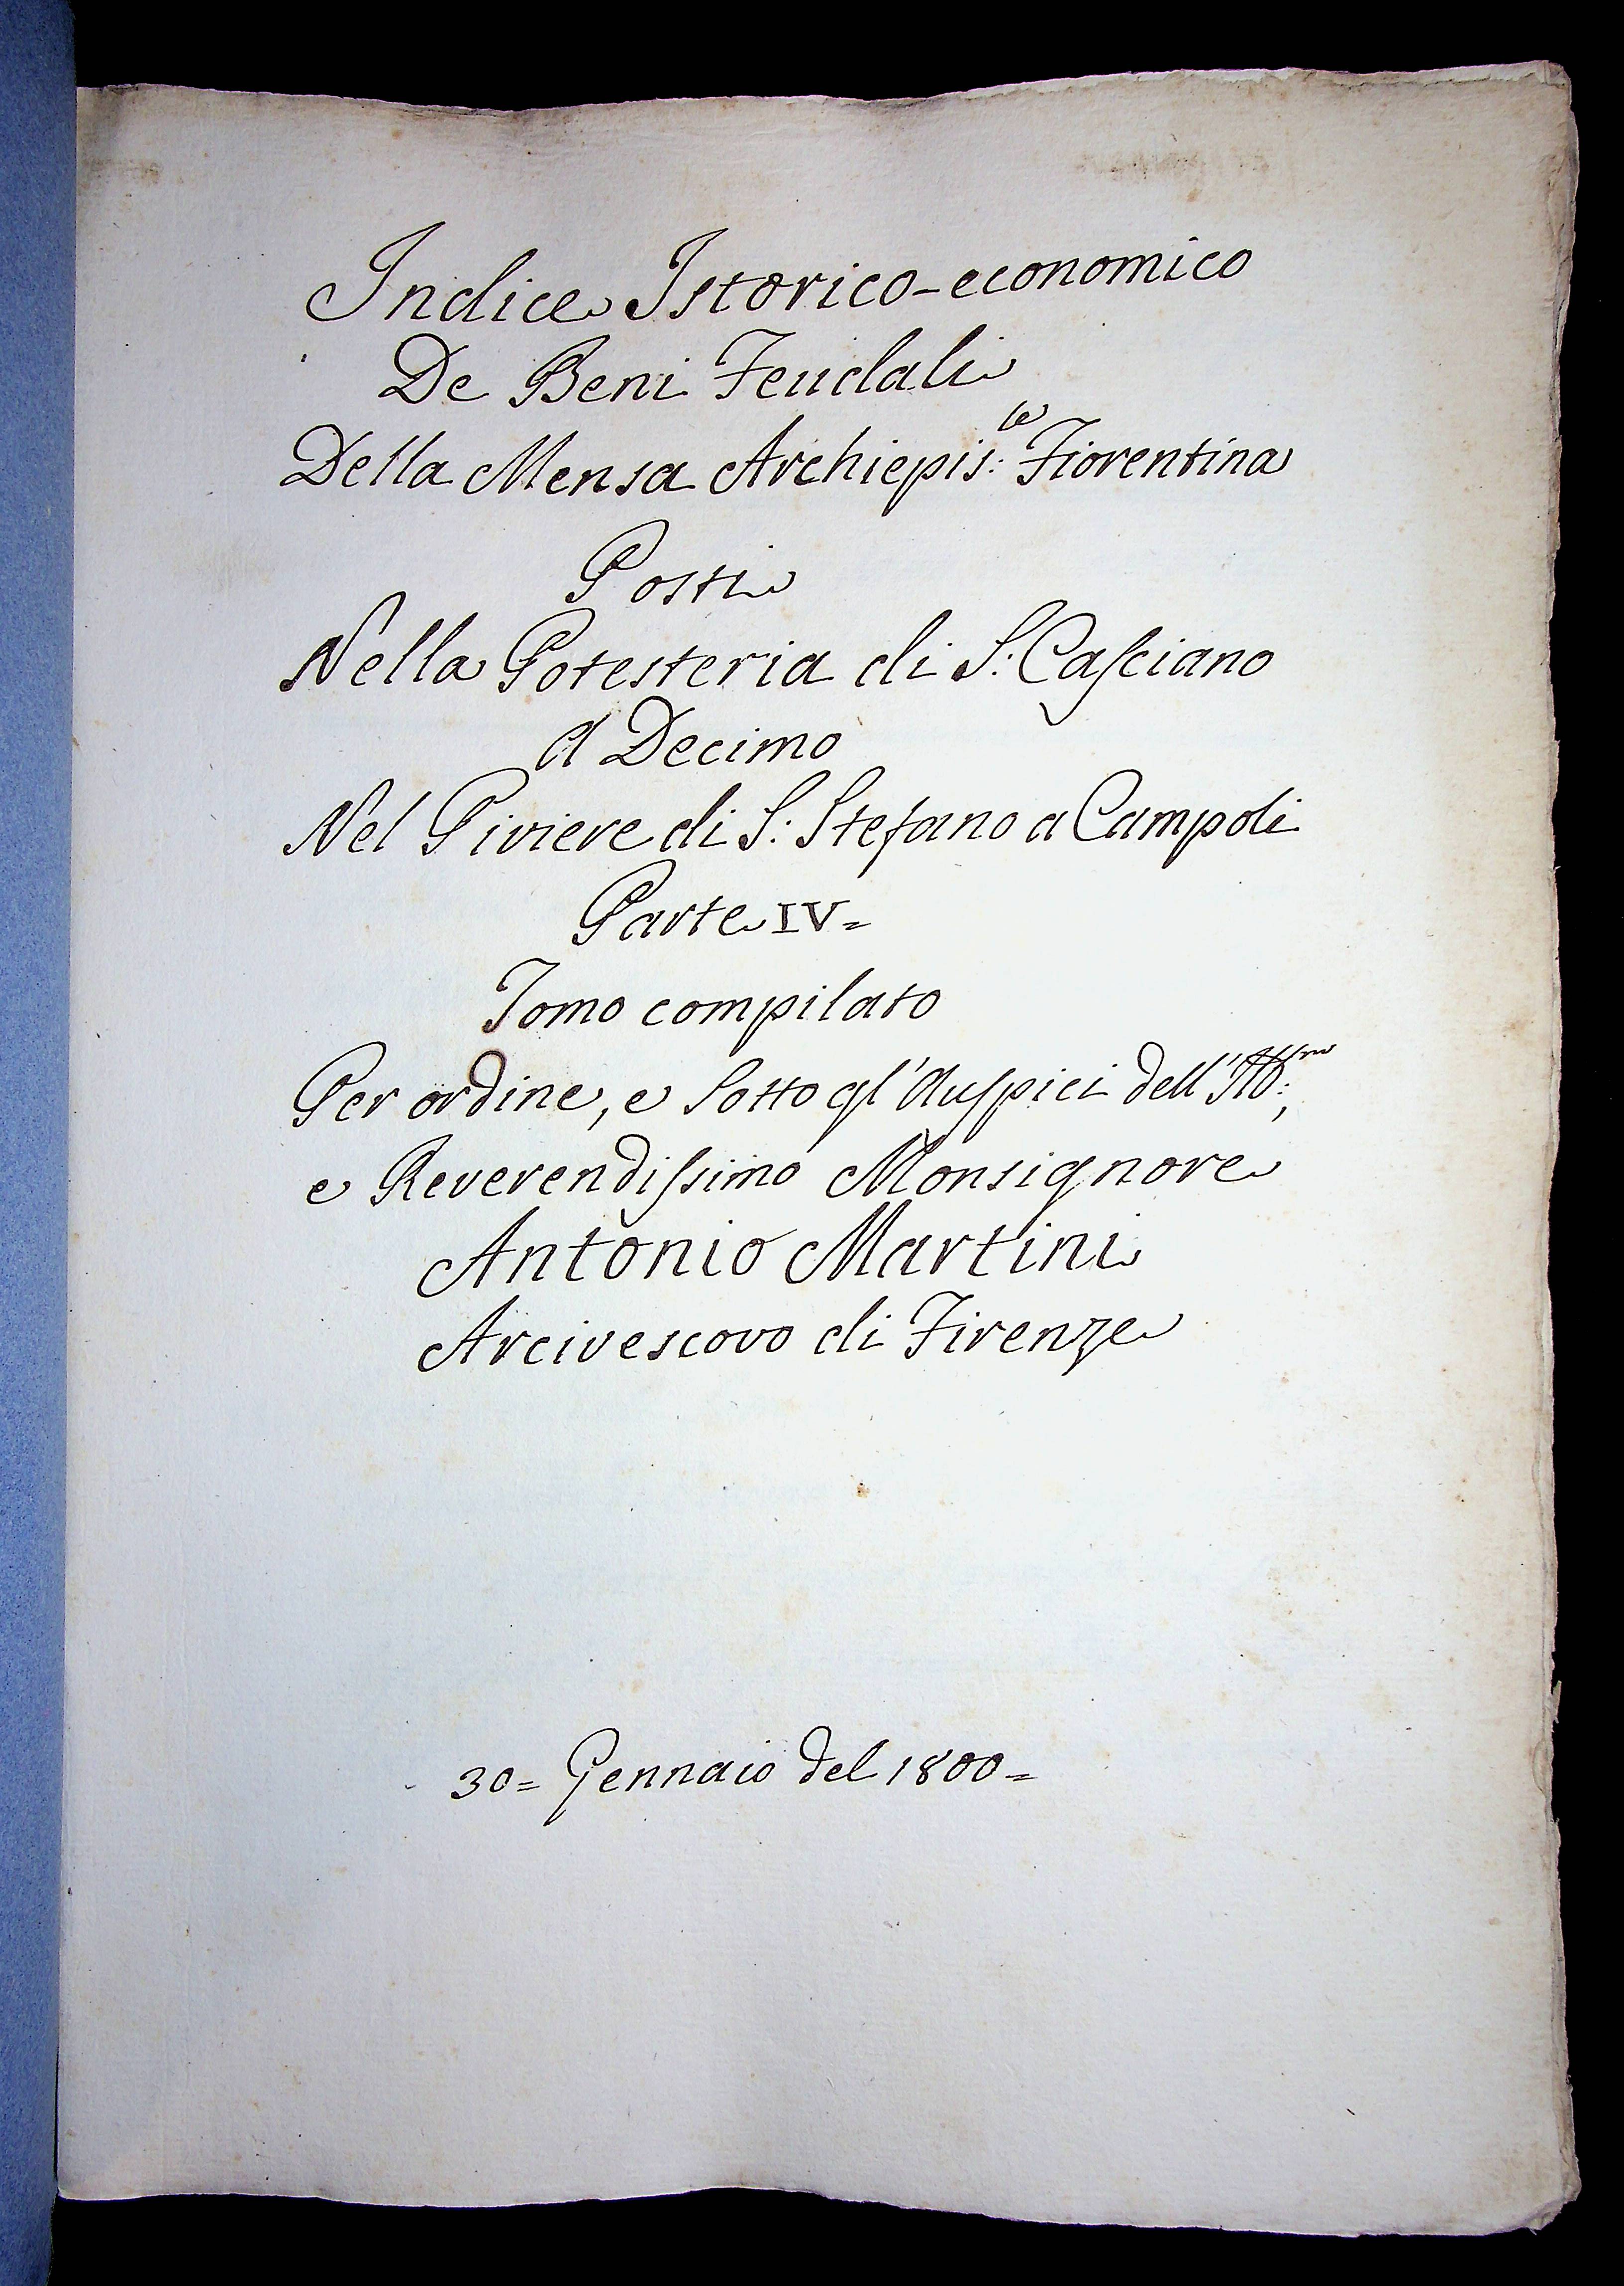 Indice Istorico-economico
De Beni Feudali
Della Mensa Archiepis:le Fiorentina
Posti
Nella Potesteria di S: Casciano
a Decimo
Nel Piviere di S: Stefano a Campoli
Parte IV=
Tomo compilato
Per ordine, e sotto gl'Auspici dell'Ill:mo,
e Reverendissimo Monsignore
Antonio Martini
Arcivescovo di Firenze
30= Gennaio del 1800=